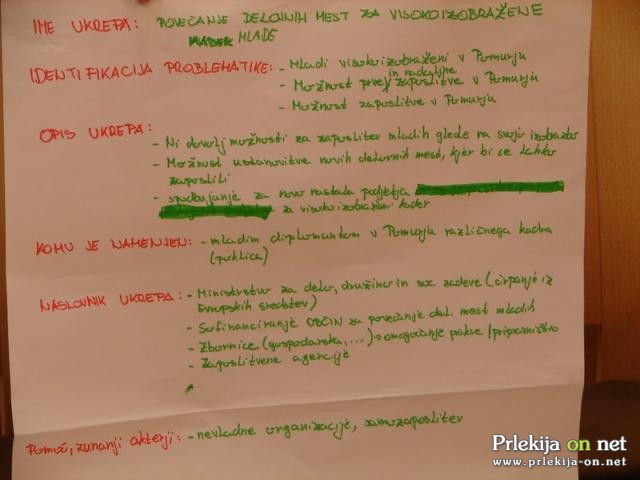 IME UKREPA: POVEČANJE DELOVNIH MEST ZA VISOKOIZOBRAŽENE
MLADE
IDENTIFIKACIJA PROBLEMATIKE: - Mladi visokoizobraženi v Pomurju
in nadaljne
- Možnost prve zaposlitve v Pomurju
- Možnost zaposlitve v Pomurju
OPIS UKREPA: - Ni dovolj možnosti za zaposlitev mladih glede na svojo izobrazbo
- Možnost ustanovitve novih delovnih mest, kjer bi se lahko
zaposlili
- spodbujanje za novo nastala podjetja
za visokoizobraženi kader
KOMU JE NAMENJEN: - mladim diplomantom v Pomurju različnega kadra
(publica)
NASLOVNIK UKREPA: - Ministrstvo za delo, družino in soc. zadeve (črpanje iz
Evropskih sredstev)
- Sofinanciranje OBČIN za povečanje del. mest mladih
- Zbornice (gospodarska, ...) → omogočanje prakse / pripravništvo
- Zaposlitvene agencije
Pomoč, zunanji akterji: - nevladne organizacije, samozaposlitev
Prlekija on net
www.prlekija-on.net